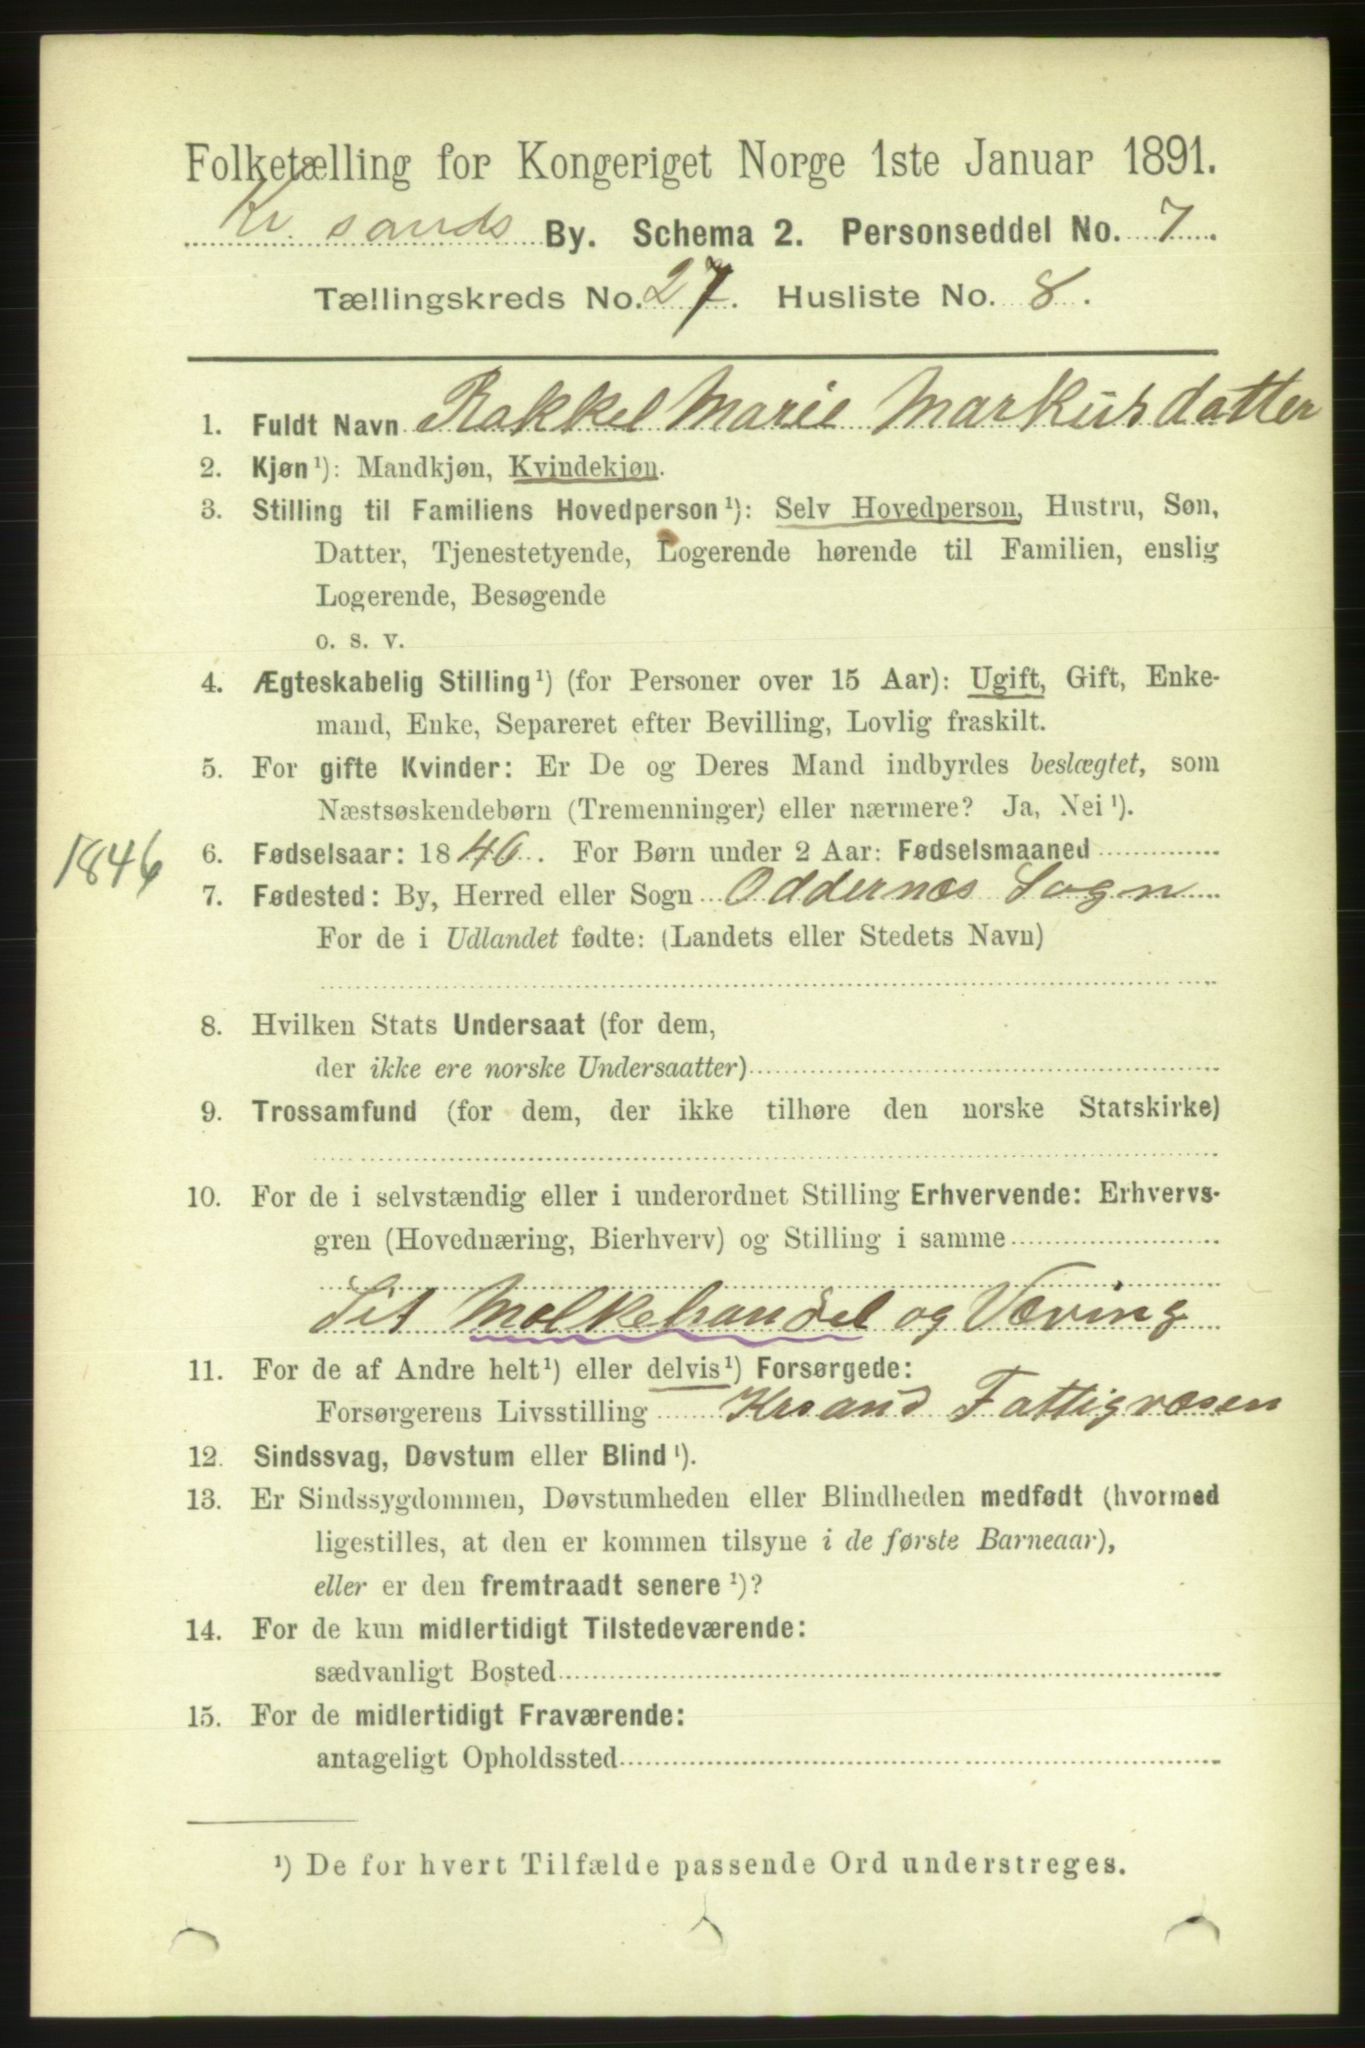 Folketælling for Kongeriget Norge 1ste Januar 1891.
Kr. sands By. Schema 2. Personseddel No. 7.
Tællingskreds No. 27. Husliste No. 8.
1. Fuldt Navn Rakkel Marie Markusdatter
2. Kjøn¹): Mandkjøn, Kvindekjøn.
3. Stilling til Familiens Hovedperson¹): Selv Hovedperson, Hustru, Søn,
Datter, Tjenestetyende, Logerende hørende til Familien, enslig
Logerende, Besøgende
o. s. v.
4. Ægteskabelig Stilling¹) (for Personer over 15 Aar): Ugift, Gift, Enke-
mand, Enke, Separeret efter Bevilling, Lovlig fraskilt.
5. For gifte Kvinder: Er De og Deres Mand indbyrdes beslægtet, som
Næstsøskendebørn (Tremenninger) eller nærmere? Ja, Nei¹).
1846
6. Fødselsaar: 1846. For Børn under 2 Aar: Fødselsmaaned
7. Fødested: By, Herred eller Sogn Oddernæs Sogn
For de i Udlandet fødte: (Landets eller Stedets Navn)
8. Hvilken Stats Undersaat (for dem,
der ikke ere norske Undersaatter)
9. Trossamfund (for dem, der ikke tilhøre den norske Statskirke)
10. For de i selvstændig eller i underordnet Stilling Erhvervende: Erhvervs-
gren (Hovednæring, Bierhverv) og Stilling i samme
Lit Mælkehandel og Væving
11. For de af Andre helt¹) eller delvis¹) Forsørgede:
Forsørgerens Livsstilling Krsand Fattigvæsen
12. Sindssvag, Døvstum eller Blind¹).
13. Er Sindssygdommen, Døvstumheden eller Blindheden medfødt (hvormed
ligestilles, at den er kommen tilsyne i de første Barneaar),
eller er den fremtraadt senere¹)?
14. For de kun midlertidigt Tilstedeværende:
sædvanligt Bosted
15. For de midlertidigt Fraværende:
antageligt Opholdssted
¹) De for hvert Tilfælde passende Ord understreges.